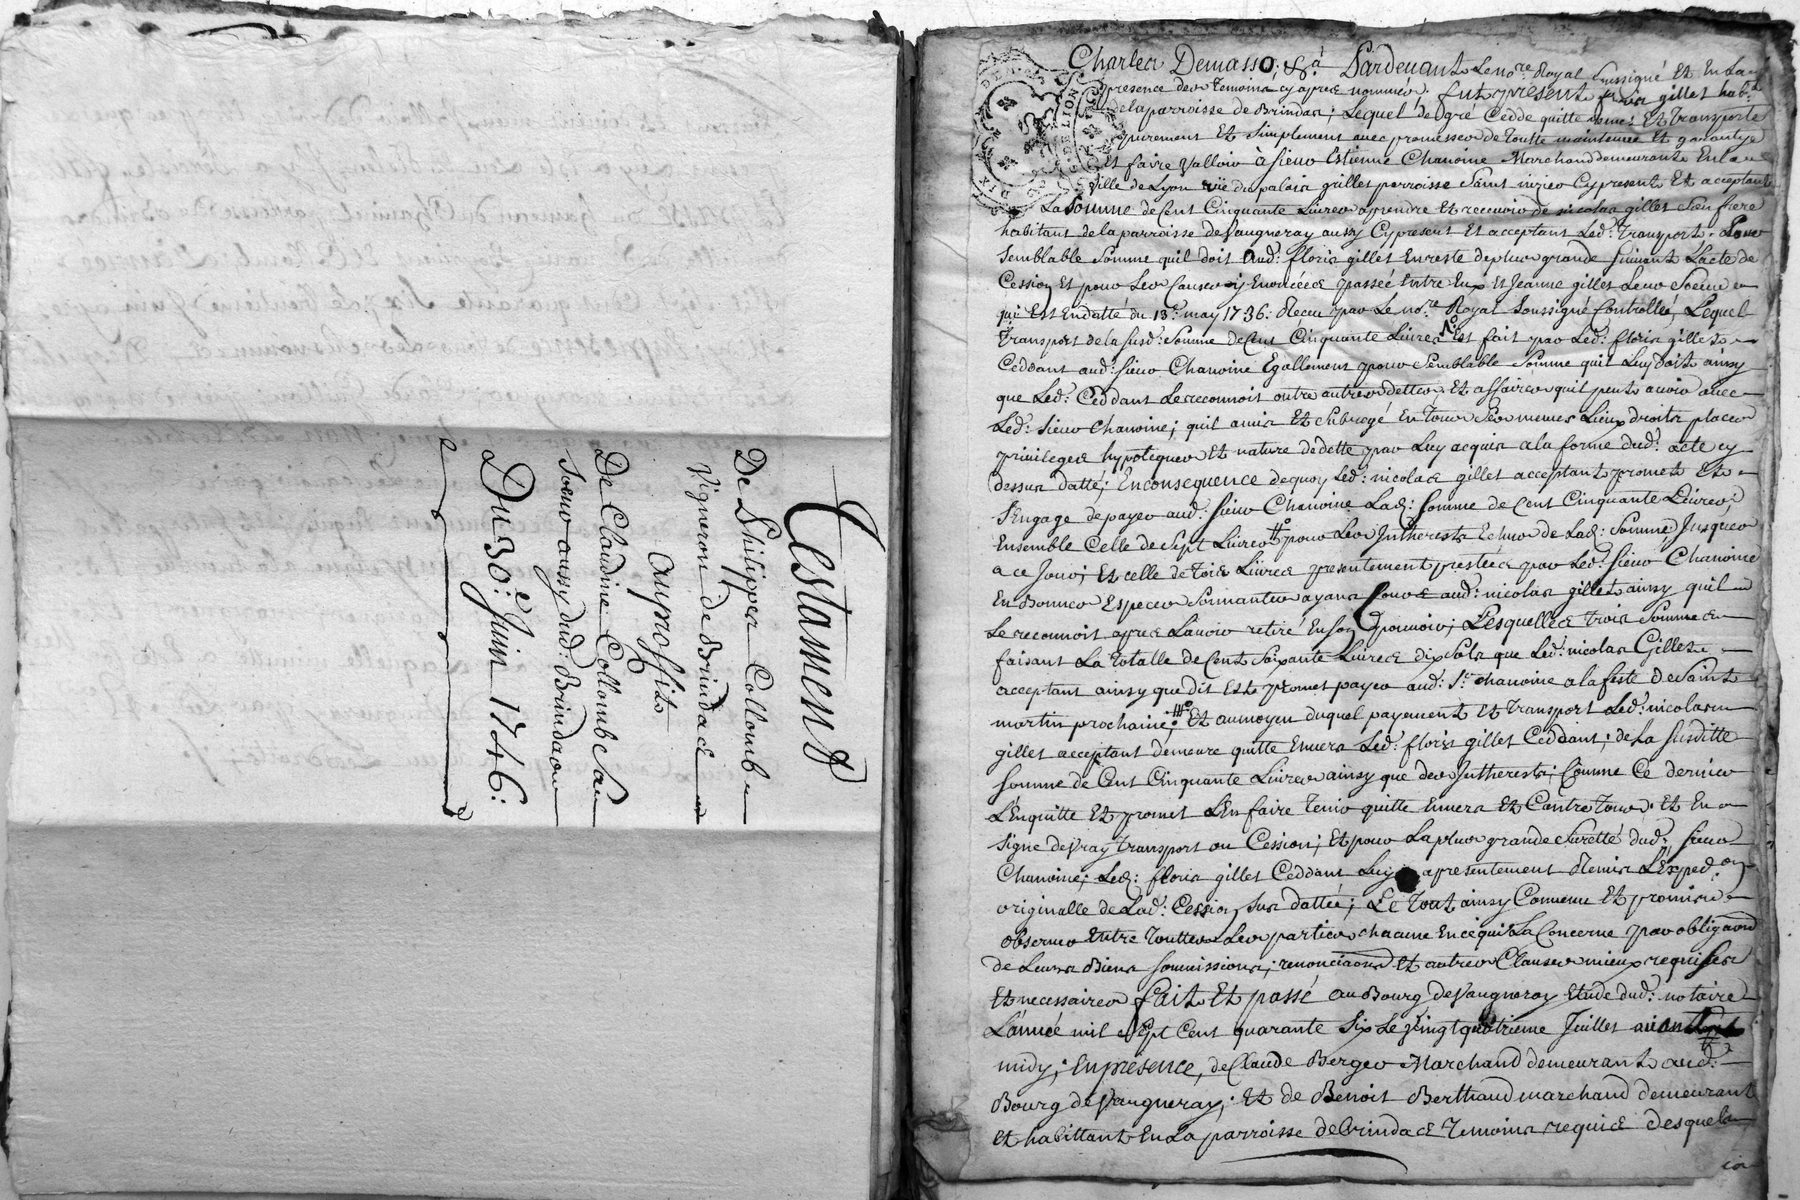 Testament
De Philipper Collomb
Vigneron de Brindas
au proffit
De Claudine Collomb Sa
Soeur aussy dud: Brindas
Du 30e: Juin 1746:
Pardevant Le nore Royal Soussigné Et En La
presence des temoins cy apres nommés. fut present floris gilles habt
de la parroisse de Brindas; Lequel de gré Cedde quitte remet Et transporte
purement Et Simplement avec promesses de toutte maintenue Et garantye
Et faire valloir à Sieur Estienne Chanoine Marchand demeurant En La
ville de Lyon rüe du palais grillet parroisse Saint nizier Cy present Et acceptant
La Somme de Cent Cinquante Livres a prendre et recevoir de nicolas gilles Son frere
habitant de la parroisse de Vaugneray aussy Cy present Et acceptant Led: transport; Pour
Semblable Somme quil doit Aud: floris gilles En reste de plus grande Suivant L'acte de
Cession Et pour Les Causes y Enoncées passée Entre Eux Et Jeanne gilles Leur Soeur
qui Est En datte du 13e: may 1736: Receu par Le nore Royal Soussigné Controllé, Lequel
transport de la susd: Somme de Cent Cinquante Livres Est fait par Led: floris gilles
Ceddant aud: Sieur Chanoine Egallement pour Semblable Somme quil Luy doit ainsy
que Led: Ceddant Le reconnoit outre autres dettes, Et affaires quil peut avoir avec
Led: Sieur Chanoine; quil a mis Et Subrogé En tous Ses memes Lieux droits places
privileges hypoteques Et nature de dette par Luy acquis a la forme dud: acte cy
dessus datté; En consequence de quoy Led: nicolas gilles acceptant promet Et
S'Engage de payer aud: Sieur Chanoine Lad: Somme de Cent Cinquante Livres;
Ensemble Celle de Sept Livres pour Les Intherests Echus de Lad: Somme Jusques
a ce Jour; Et celle de trois Livres presentement prestées par Led: Sieur Chanoine
En Bonnes Especes Sonnantes ayans Cours aud: nicolas gilles ainsy quil
Le reconnoit apres L'avoir retiré En Son pouvoir; Lesquelles trois Sommes
faisant La totalle de Cent Soixante Livres dix Sols que Led: nicolas Gilles
acceptant ainsy que dit Est promet payer aud: Sr Chanoine a la feste de Saint
martin prochaine; Et au moyen duquel payement Et transport Led: nicolas
gilles acceptant demeure quitte Envers Led: floris gilles Ceddant; de La Susditte
Somme de Cent Cinquante Livres ainsy que des Intherests; Comme Ce dernier
L'En quitte Et promet L'En faire tenir quitte Envers Et Contre tous. Et En
Signe de vray transport ou Cession; Et pour La plus grande Surette dud: Sieur
Chanoine; Led: floris gilles Ceddant Luy a presentement Remis L'Expedon
originalle de Lad: Cession Sus dattée; Le tout ainsy Convenu Et promis
observer Entre touttes Les parties chacune En ce qui La Concerne par obligaon
de Leurs Biens Soumissions; renonciaons Et autres Clauses mieux requises
Et necessaires fait Et passé au Bourg de Vaugneray Etude dud: notaire
L'année mil Sept Cent quarante Six Le vingt quatrieme Juillet avant
midy; En presence, de Claude Berger Marchand demeurant aud:
Bourg de Vaugneray; Et de Benoit Berthaud marchand demeurant
Et habittant En La parroisse de Brindas temoins requis Desquels